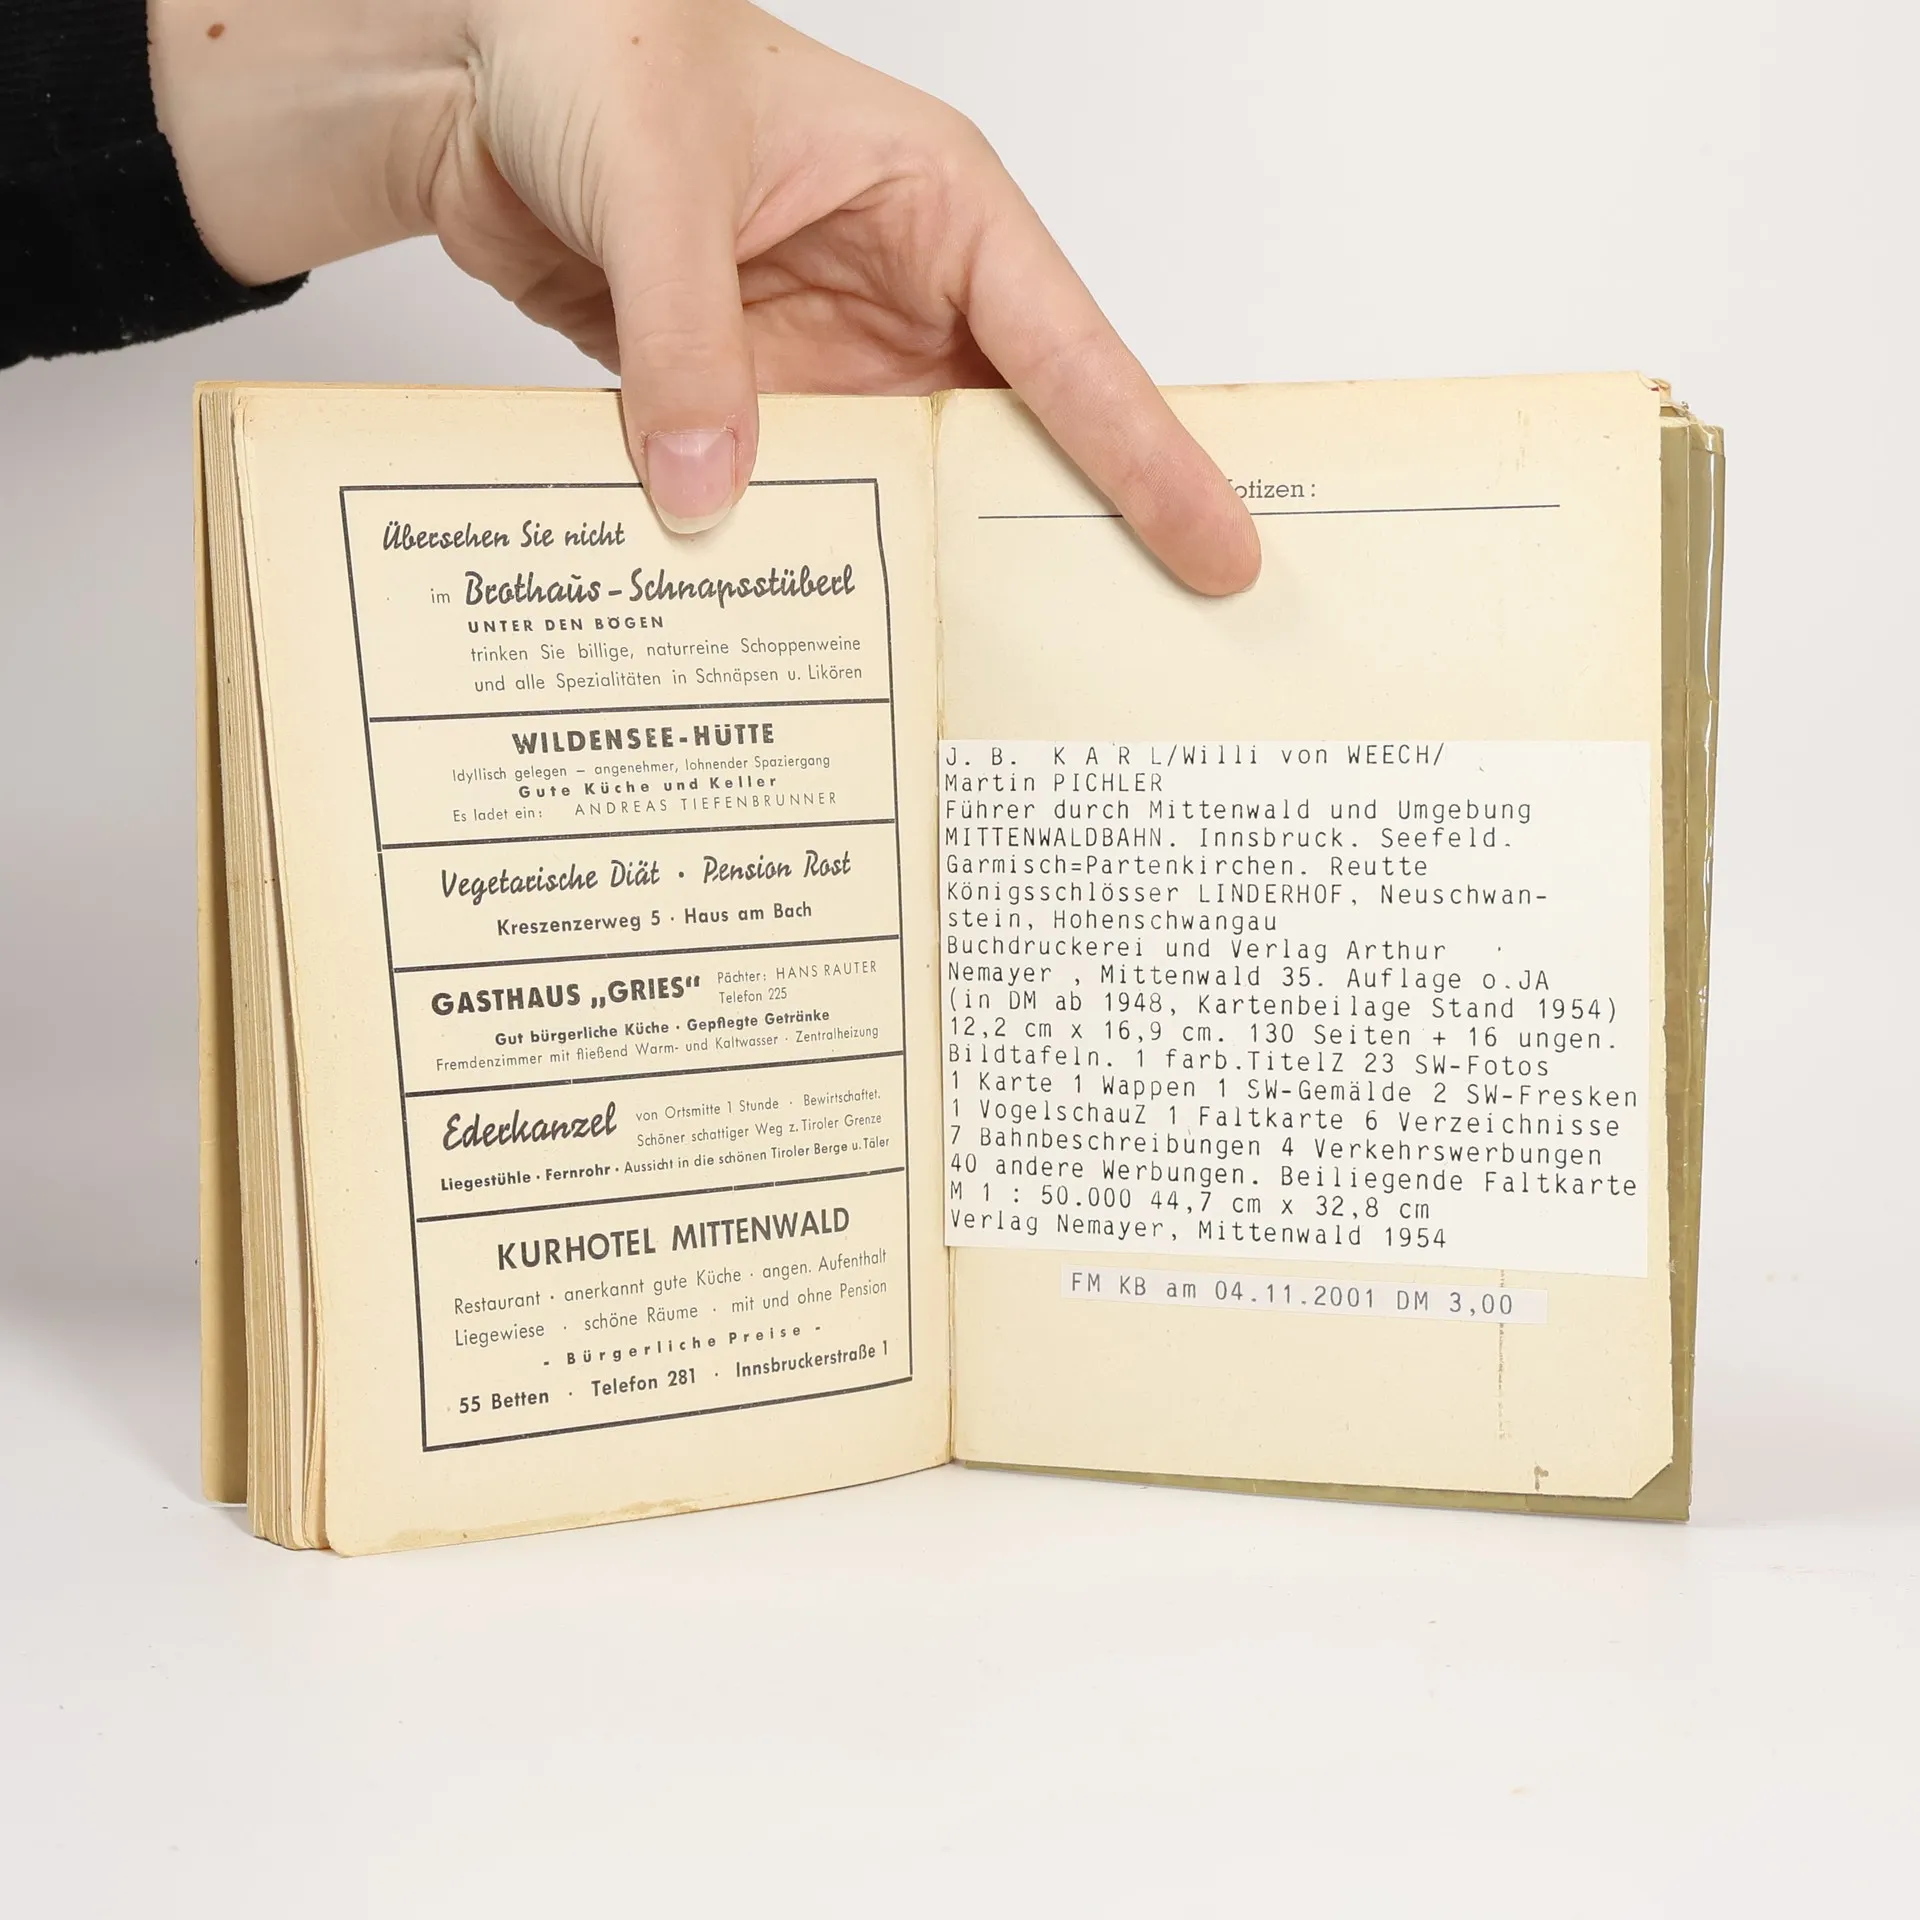 Übersehen Sie nicht
im Brothaus – Schnapsstüberl
UNTER DEN BÖGEN
trinken Sie billige, naturreine Schoppenweine
und alle Spezialitäten in Schnäpsen u. Likören
WILDENSEE-HÜTTE
Idyllisch gelegen – angenehmer, lohnender Spaziergang
Gute Küche und Keller
Es ladet ein: ANDREAS TIEFENBRUNNER
Vegetarische Diät · Pension Rost
Kreszenzerweg 5 · Haus am Bach
GASTHAUS „GRIES“ Pächter: HANS RAUTER
Telefon 225
Gut bürgerliche Küche · Gepflegte Getränke
Fremdenzimmer mit fließend Warm- und Kaltwasser · Zentralheizung
Ederkanzel von Ortsmitte 1 Stunde · Bewirtschaftet.
Schöner schattiger Weg z. Tiroler Grenze
Liegestühle · Fernrohr · Aussicht in die schönen Tiroler Berge u. Täler
KURHOTEL MITTENWALD
Restaurant · anerkannt gute Küche · angen. Aufenthalt
Liegewiese · schöne Räume · mit und ohne Pension
- Bürgerliche Preise -
55 Betten · Telefon 281 · Innsbruckerstraße 1
otizen :
J. B. K A R L/Willi von WEECH/
Martin PICHLER
Führer durch Mittenwald und Umgebung
MITTENWALDBAHN. Innsbruck. Seefeld.
Garmisch=Partenkirchen. Reutte
Königsschlösser LINDERHOF, Neuschwan-
stein, Hohenschwangau
Buchdruckerei und Verlag Arthur
Nemayer , Mittenwald 35. Auflage o.JA
(in DM ab 1948, Kartenbeilage Stand 1954)
12,2 cm x 16,9 cm. 130 Seiten + 16 ungen.
Bildtafeln. 1 farb.TitelZ 23 SW-Fotos
1 Karte 1 Wappen 1 SW-Gemälde 2 SW-Fresken
1 VogelschauZ 1 Faltkarte 6 Verzeichnisse
7 Bahnbeschreibungen 4 Verkehrswerbungen
40 andere Werbungen. Beiliegende Faltkarte
M 1 : 50.000 44,7 cm x 32,8 cm
Verlag Nemayer, Mittenwald 1954
FM KB am 04.11.2001 DM 3,00